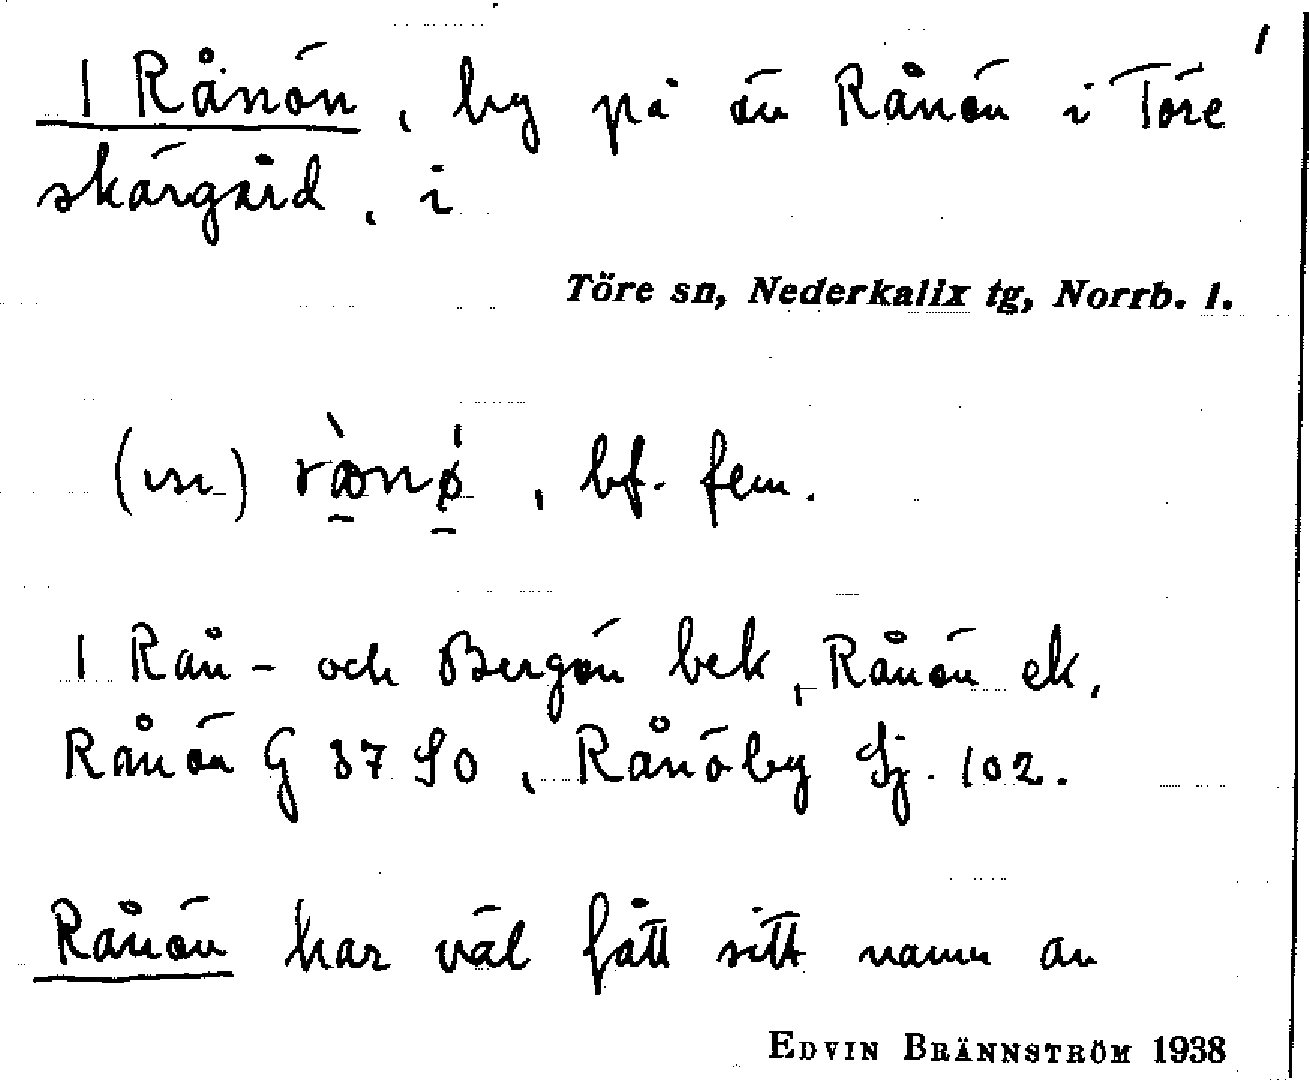 1 Rånön, by på ön Rånön i Töre 1
skärgård, i
Töre sn, Nederkalix tg, Norrb. l.
(ɪn) ræ̀nǿ, bf. fem.
1 Rån- och Bergön bek, Rånön ek,
Rånön G 87 90, Rånöby Sj. 102.
Rånön har väl fått sitt namn av
EDVIN BRÄNNSTRÖM 1938